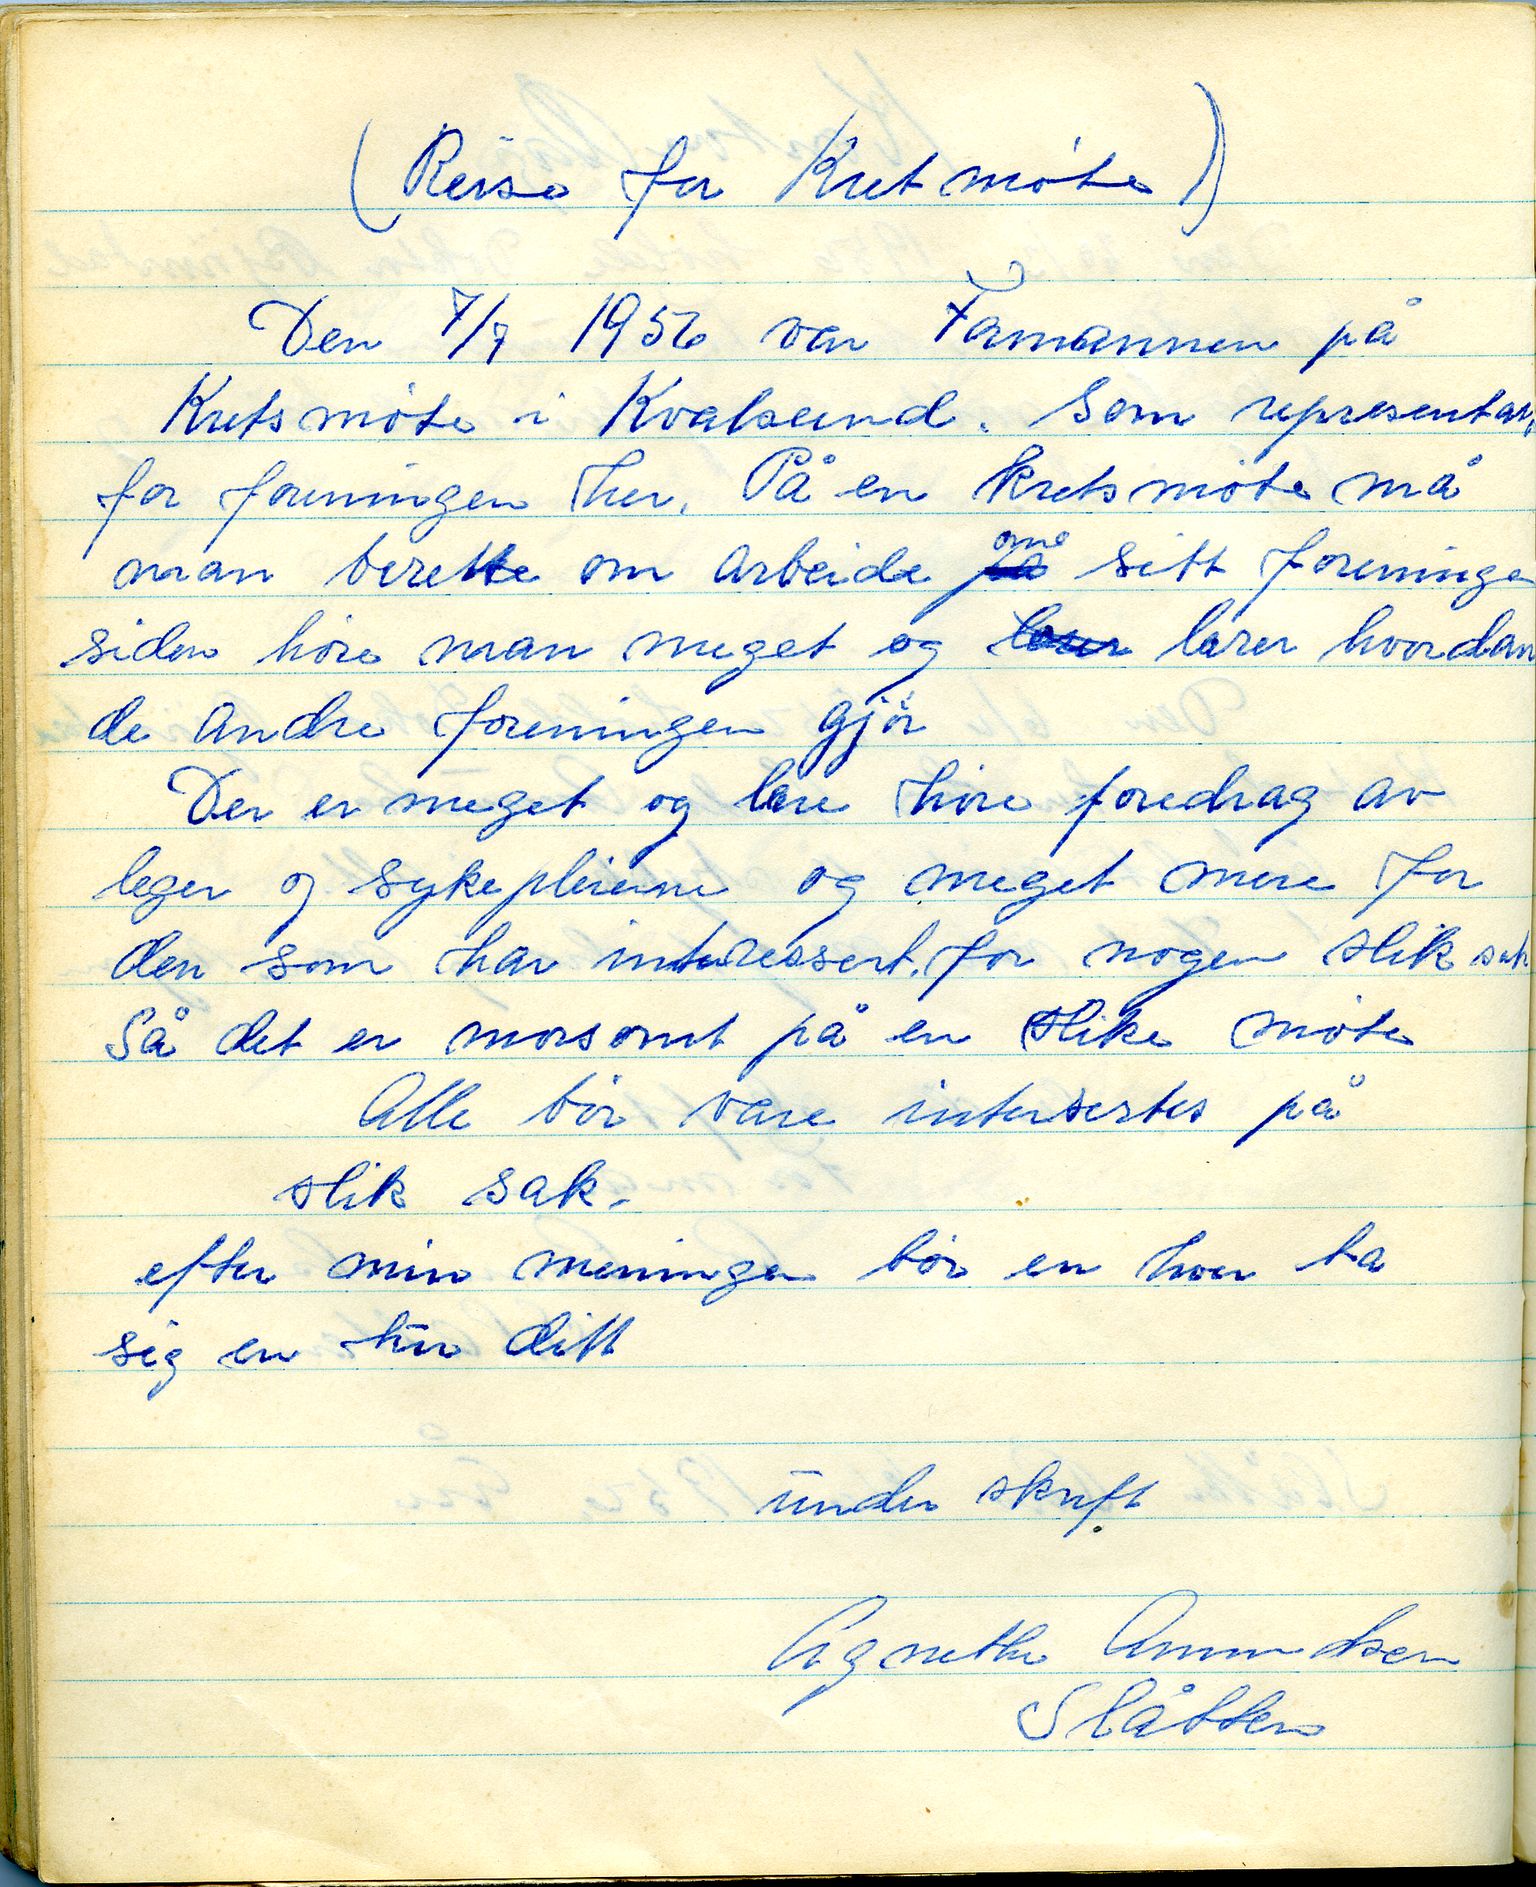 (Reise for Kretmøte)
Den 7/7 1956 var Formannen på
Kretsmøte i Kvalsund. Som representan
for foreningen her. På en kretsmøte må
man berette om arbeide om sitt foreninge
siden høre man meget og lærer hvordan
de andre foreningen gjør
Der er meget og lære høre foredrag av
leger og sykepleierne og meget mere for
den som har interessert. for nogen slik sak
Så det er morsomt på en slike møte
Alle bør være intersertes på
slik sak.
efter min meningen bør en hver ta
sig en tür ditt
ünder skrift
Agnethe Amundsen
Slåtten